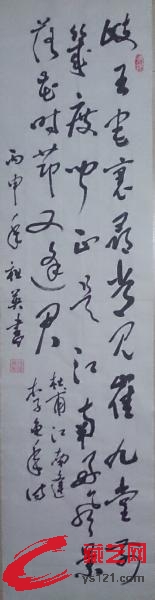 岐王宅裏尋常見崔九堂前
幾度聞正是江南好風景
落花時節又逢君
杜甫江南逢
李龟年诗
丙申年祖英書
ys121.com